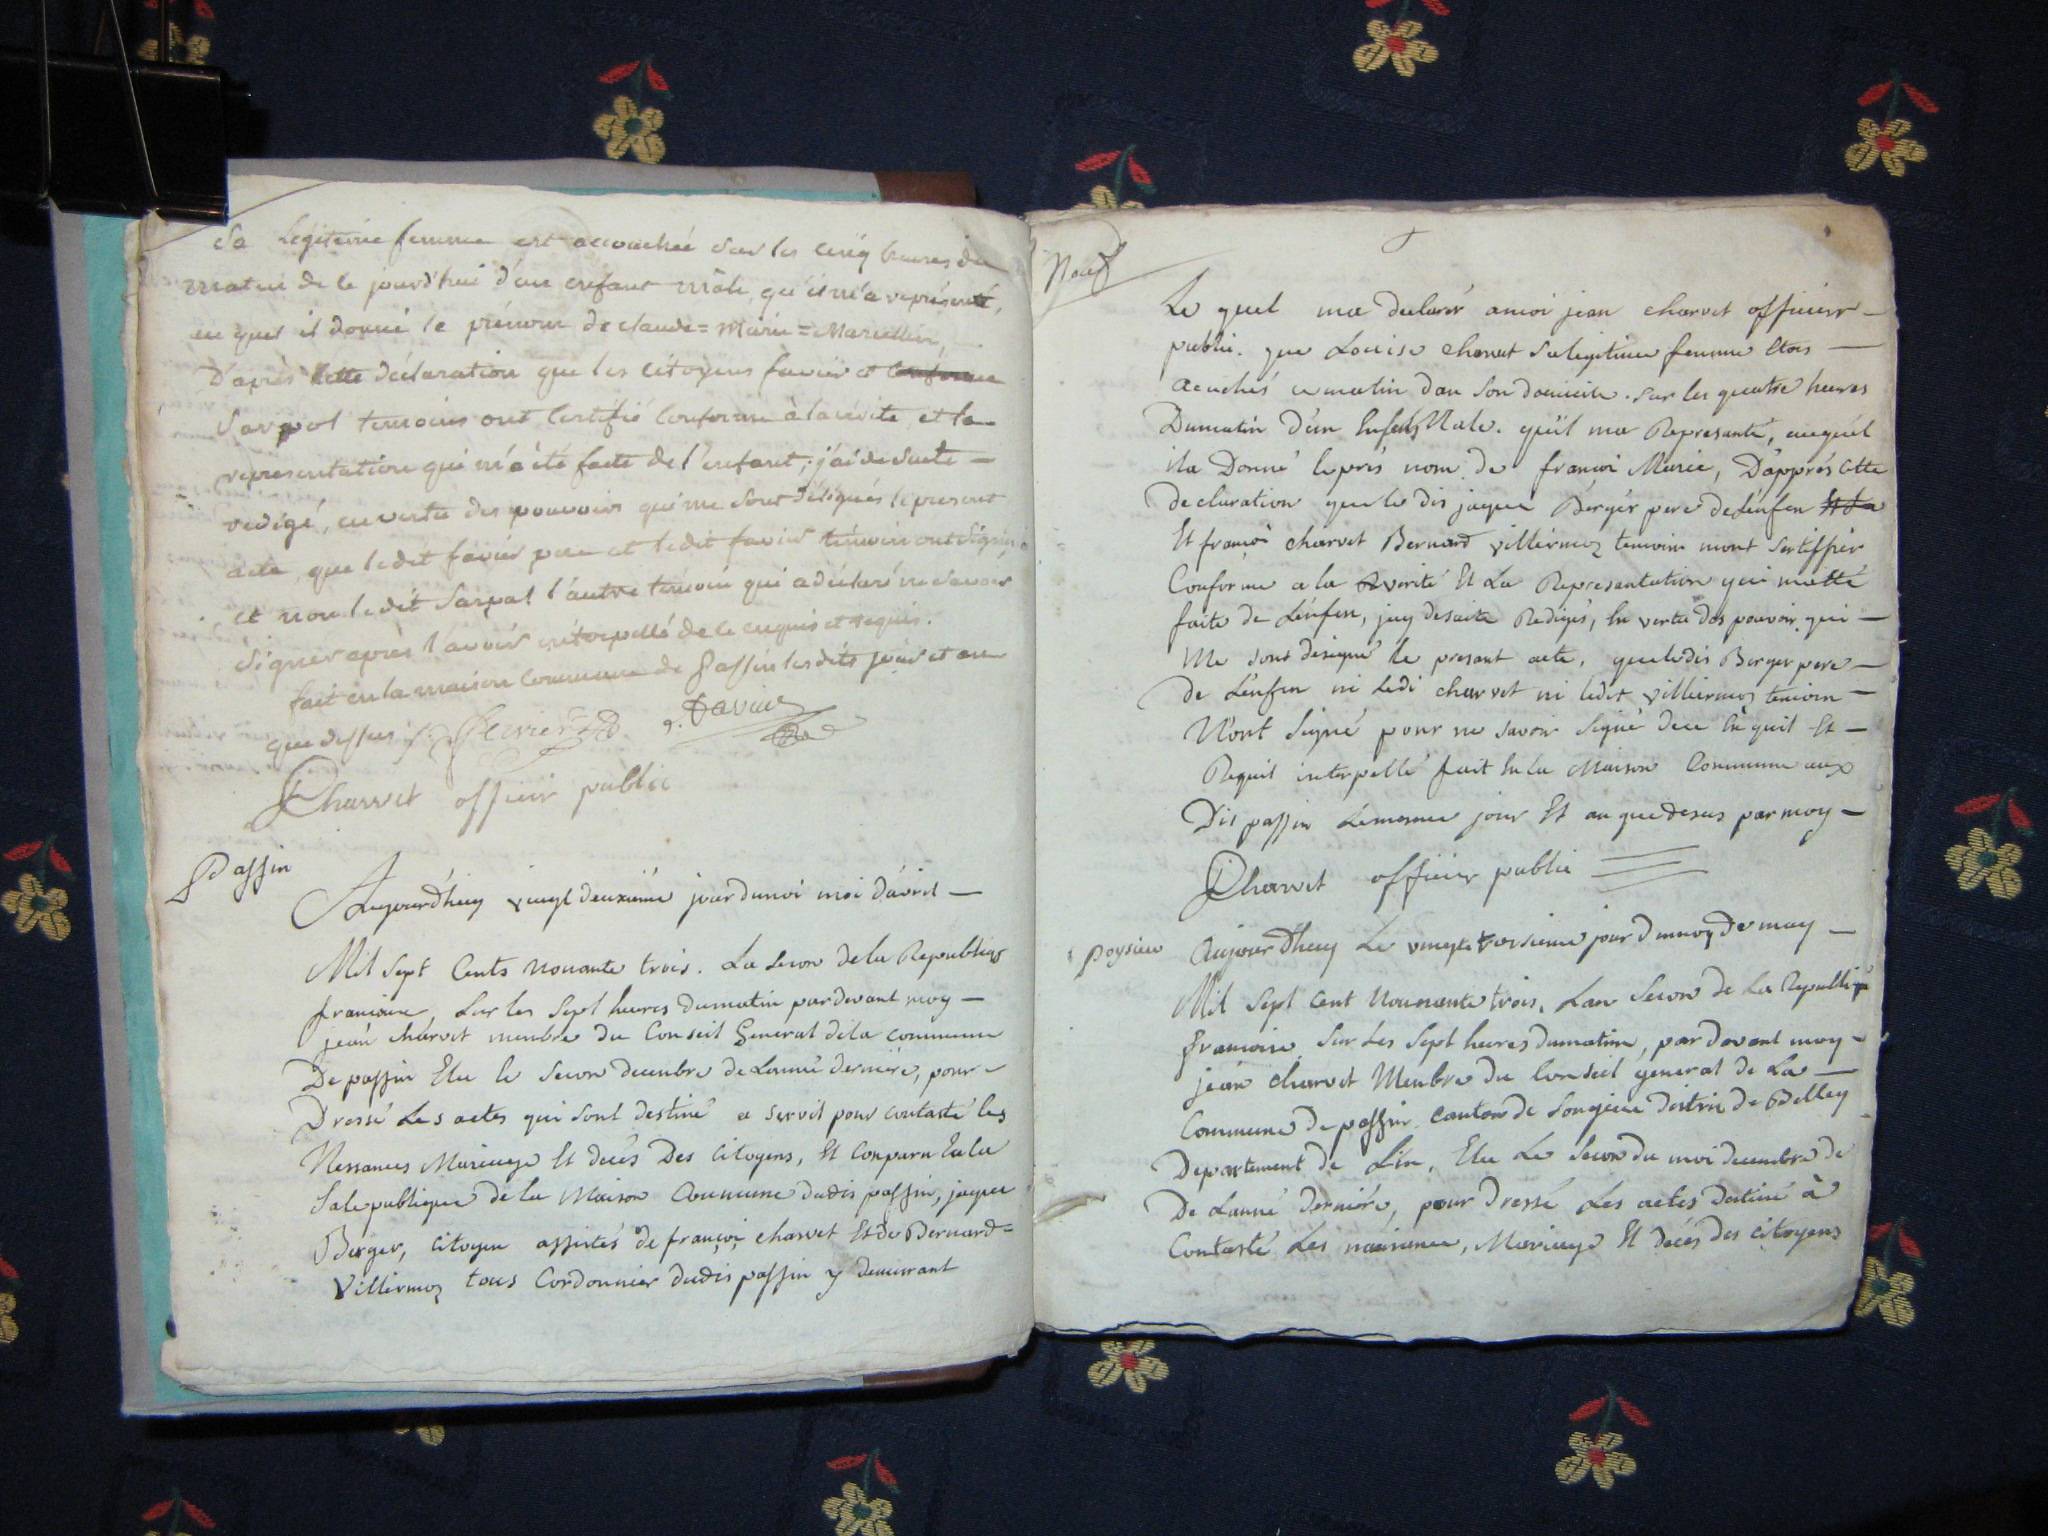 Sa legitime femme est accouchée sur les cinq heures du
matin de ce jourd'hui d'un enfant mâle, qu'il m'a représenté,
au quel il donné le prénom de claude = Marie = Marcellin,
D'après cette déclaration que les citoyens favier et conforme
Sarpol temoins ont certifié conforme à la vérité et la
représentation qui m'a été faite de l'enfant; j'ai de suite
redigé, en vertu des pouvoirs qui me sont délégués le present
acte, que ledit favier pere et ledit favier témoin ont signé
et non ledit Sarpal l'autre temoin qui a déclaré ne savoir
signer après l'avoir interpellé de ce enquis et requis.
fait en la maison commune de Passin les dits jour et an
que dessus favier
J Charvet officier public
Passin
Aujourd'huy vingt deuxieme jour du moi moi d'avril
Mil Sept Cents Nonante trois. La Secon de la Republiq
francoise, Sur les Sept heures du matin par devant moy
jean charvet membre du Conseil General de la commune
De passin Elu le Secon decembre de Lanné derniere, pour
Dressé Les actes qui Sont destiné a servit pour contasté les
Nessances Mariage Et decés Des Citoyens, Et Conparu En la
Sale publique de la Maison Commune dudis passin, jaque
Berger, Citoyen assistés de françoi charvet Et de Bernard
Villermoz tous Cordonnier dudis passin y demurant
Neuf
Le quel ma declarér a moi jean charvet officier
public. que Louise charvet Sa legitime femme Etois
acuchés ce matin dan Son domicile. Sur les quatre heures
Du matin d'un Enfan Male. qu'il ma Represanté, auquel
il a Donné le prés nom de françoi Marie, D'apprés cette
declaration que le dis jaque Bergér pere de L'enfen Et La
Et françoi charvet Bernard villermoz temoin mont Sertiffier
Conforme a la verité Et La Representation qui ma Eté
faite de L'enfen, jay de suite Redigés, En vertu des pouvoir qui
Me sont designé le presant acte, que le dis Berger pere
de L'enfen ni Ledi charvet ni ledit villermoz temoin
N'ont Signé pour ne savoir Signé de ce En quit Et
Requit interpellé fait En la Maison Commune aux
Dis passin Le mesme jour Et an que desus par moy
J Charvet officier public
poysieu
Aujourdhuy Le vingte troisieme jour du moy de may
Mil Sept Cent Nounante trois, Lan Secon de La Republique
francoise, Sur Les Sept heures du matin, par devant moy
jean charvet Menbre du Conseil general de La
Commune de passin canton de Songieu distric de Belley
Departement de Lin, Elu Le Secon du moi decembre de
De Lanné derniere, pour Dressé Les actes destiné à
Contasté Les naisance, Mariage Et decés des citoyens